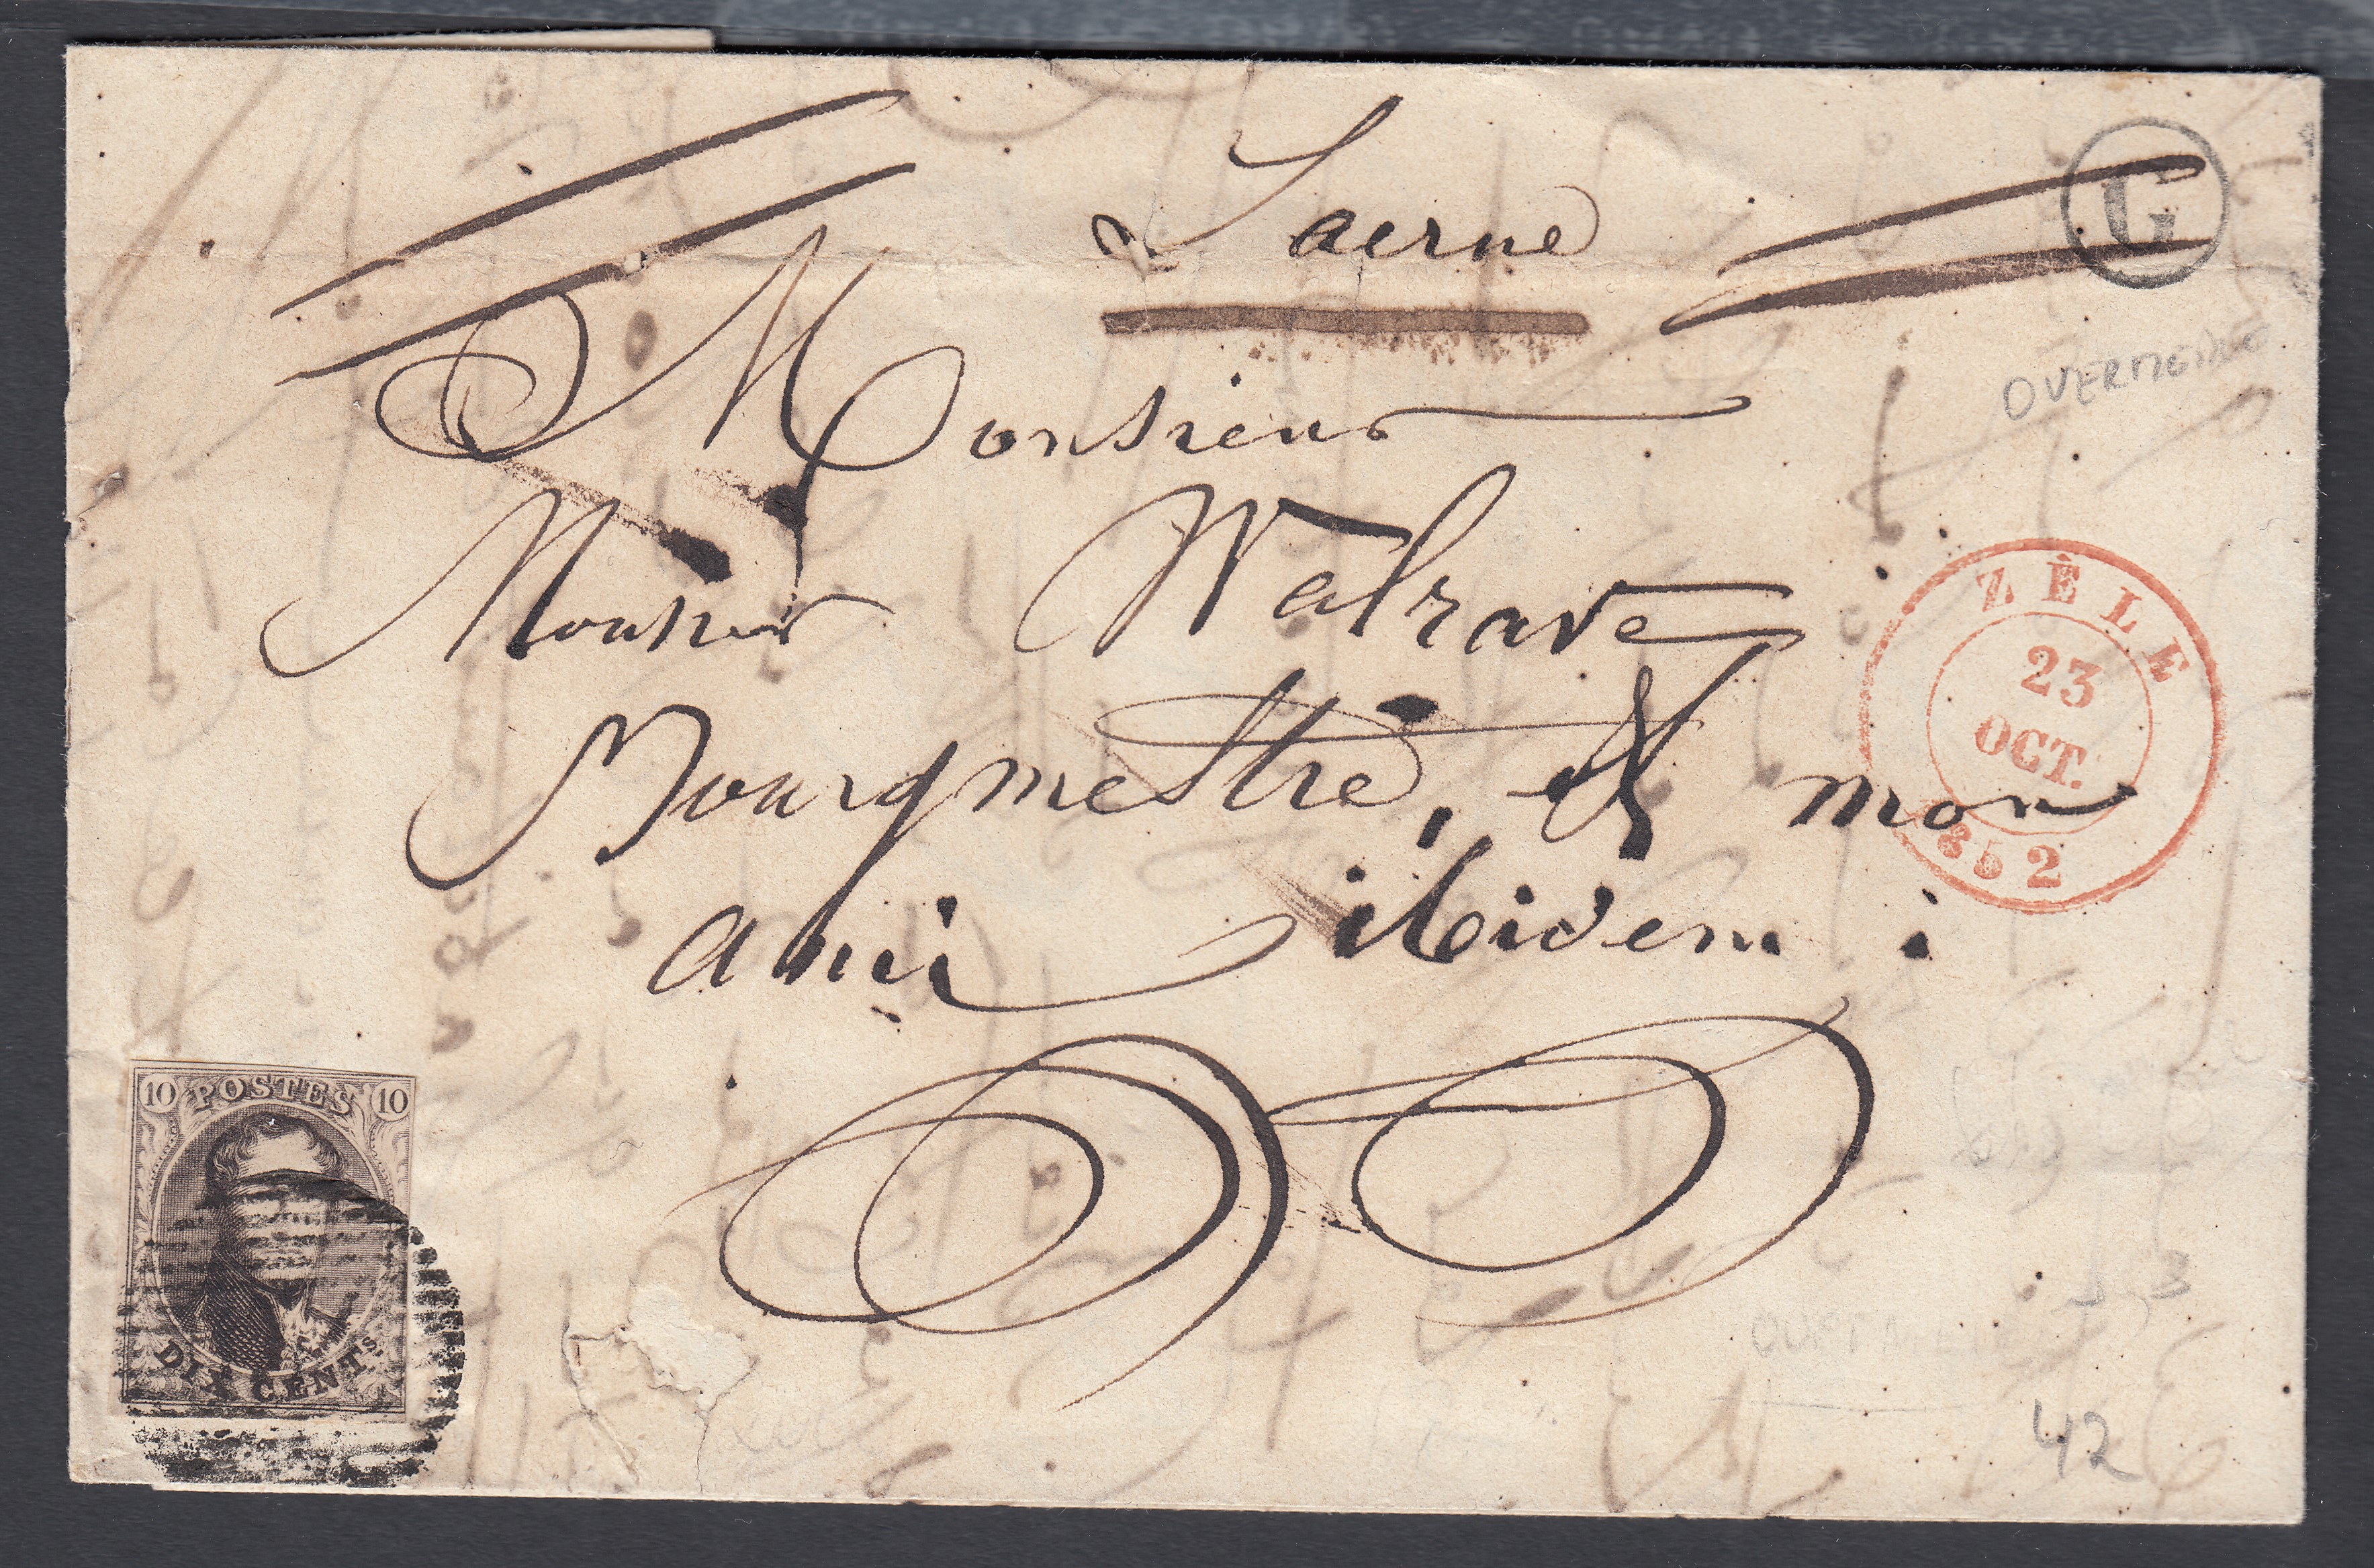 Laerne
G
OVERMEIRE
Monsieur
Monsieur Walrave
Bourgmestre, et mon
ami ibidem :
ZÈLE
23
OCT.
1852
10 POSTES 10
DIX CENTS.
42